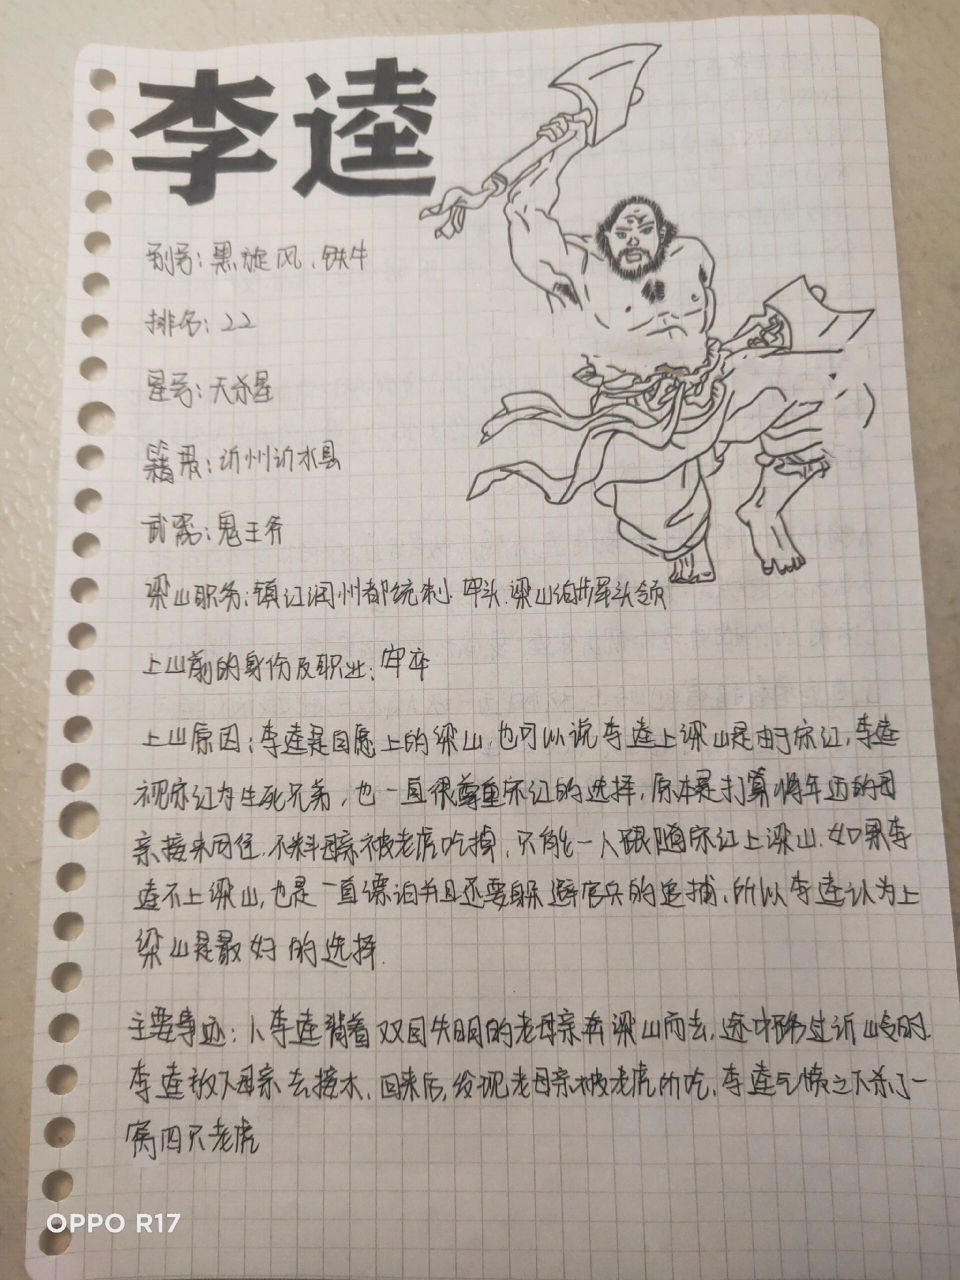 李逵
别号：黑旋风、铁牛
排名：22
星号：天杀星
籍贯：沂州沂水县
武器：鬼王斧
梁山职务：镇江润州都统制、牢头、梁山泊步军头领
上山前的身份及职业：牢卒
上山原因：李逵是自愿上的梁山，也可以说李逵上梁山是由于宋江，李逵
视宋江为生死兄弟，也一直很尊重宋江的选择，原本是打算将年迈的母
亲接来同住，不料母亲被老虎吃掉，只能一人跟随宋江上梁山。如果李
逵不上梁山，也是一直漂泊并且还要躲避官兵的追捕，所以李逵认为上
梁山是最好的选择。
主要事迹：1、李逵背着双目失明的老母亲奔梁山而去，途中路过沂岭时，
李逵放下母亲去接水，回来后，发现老母亲被老虎所吃，李逵气愤之下杀了一
窝四只老虎
OPPO R17